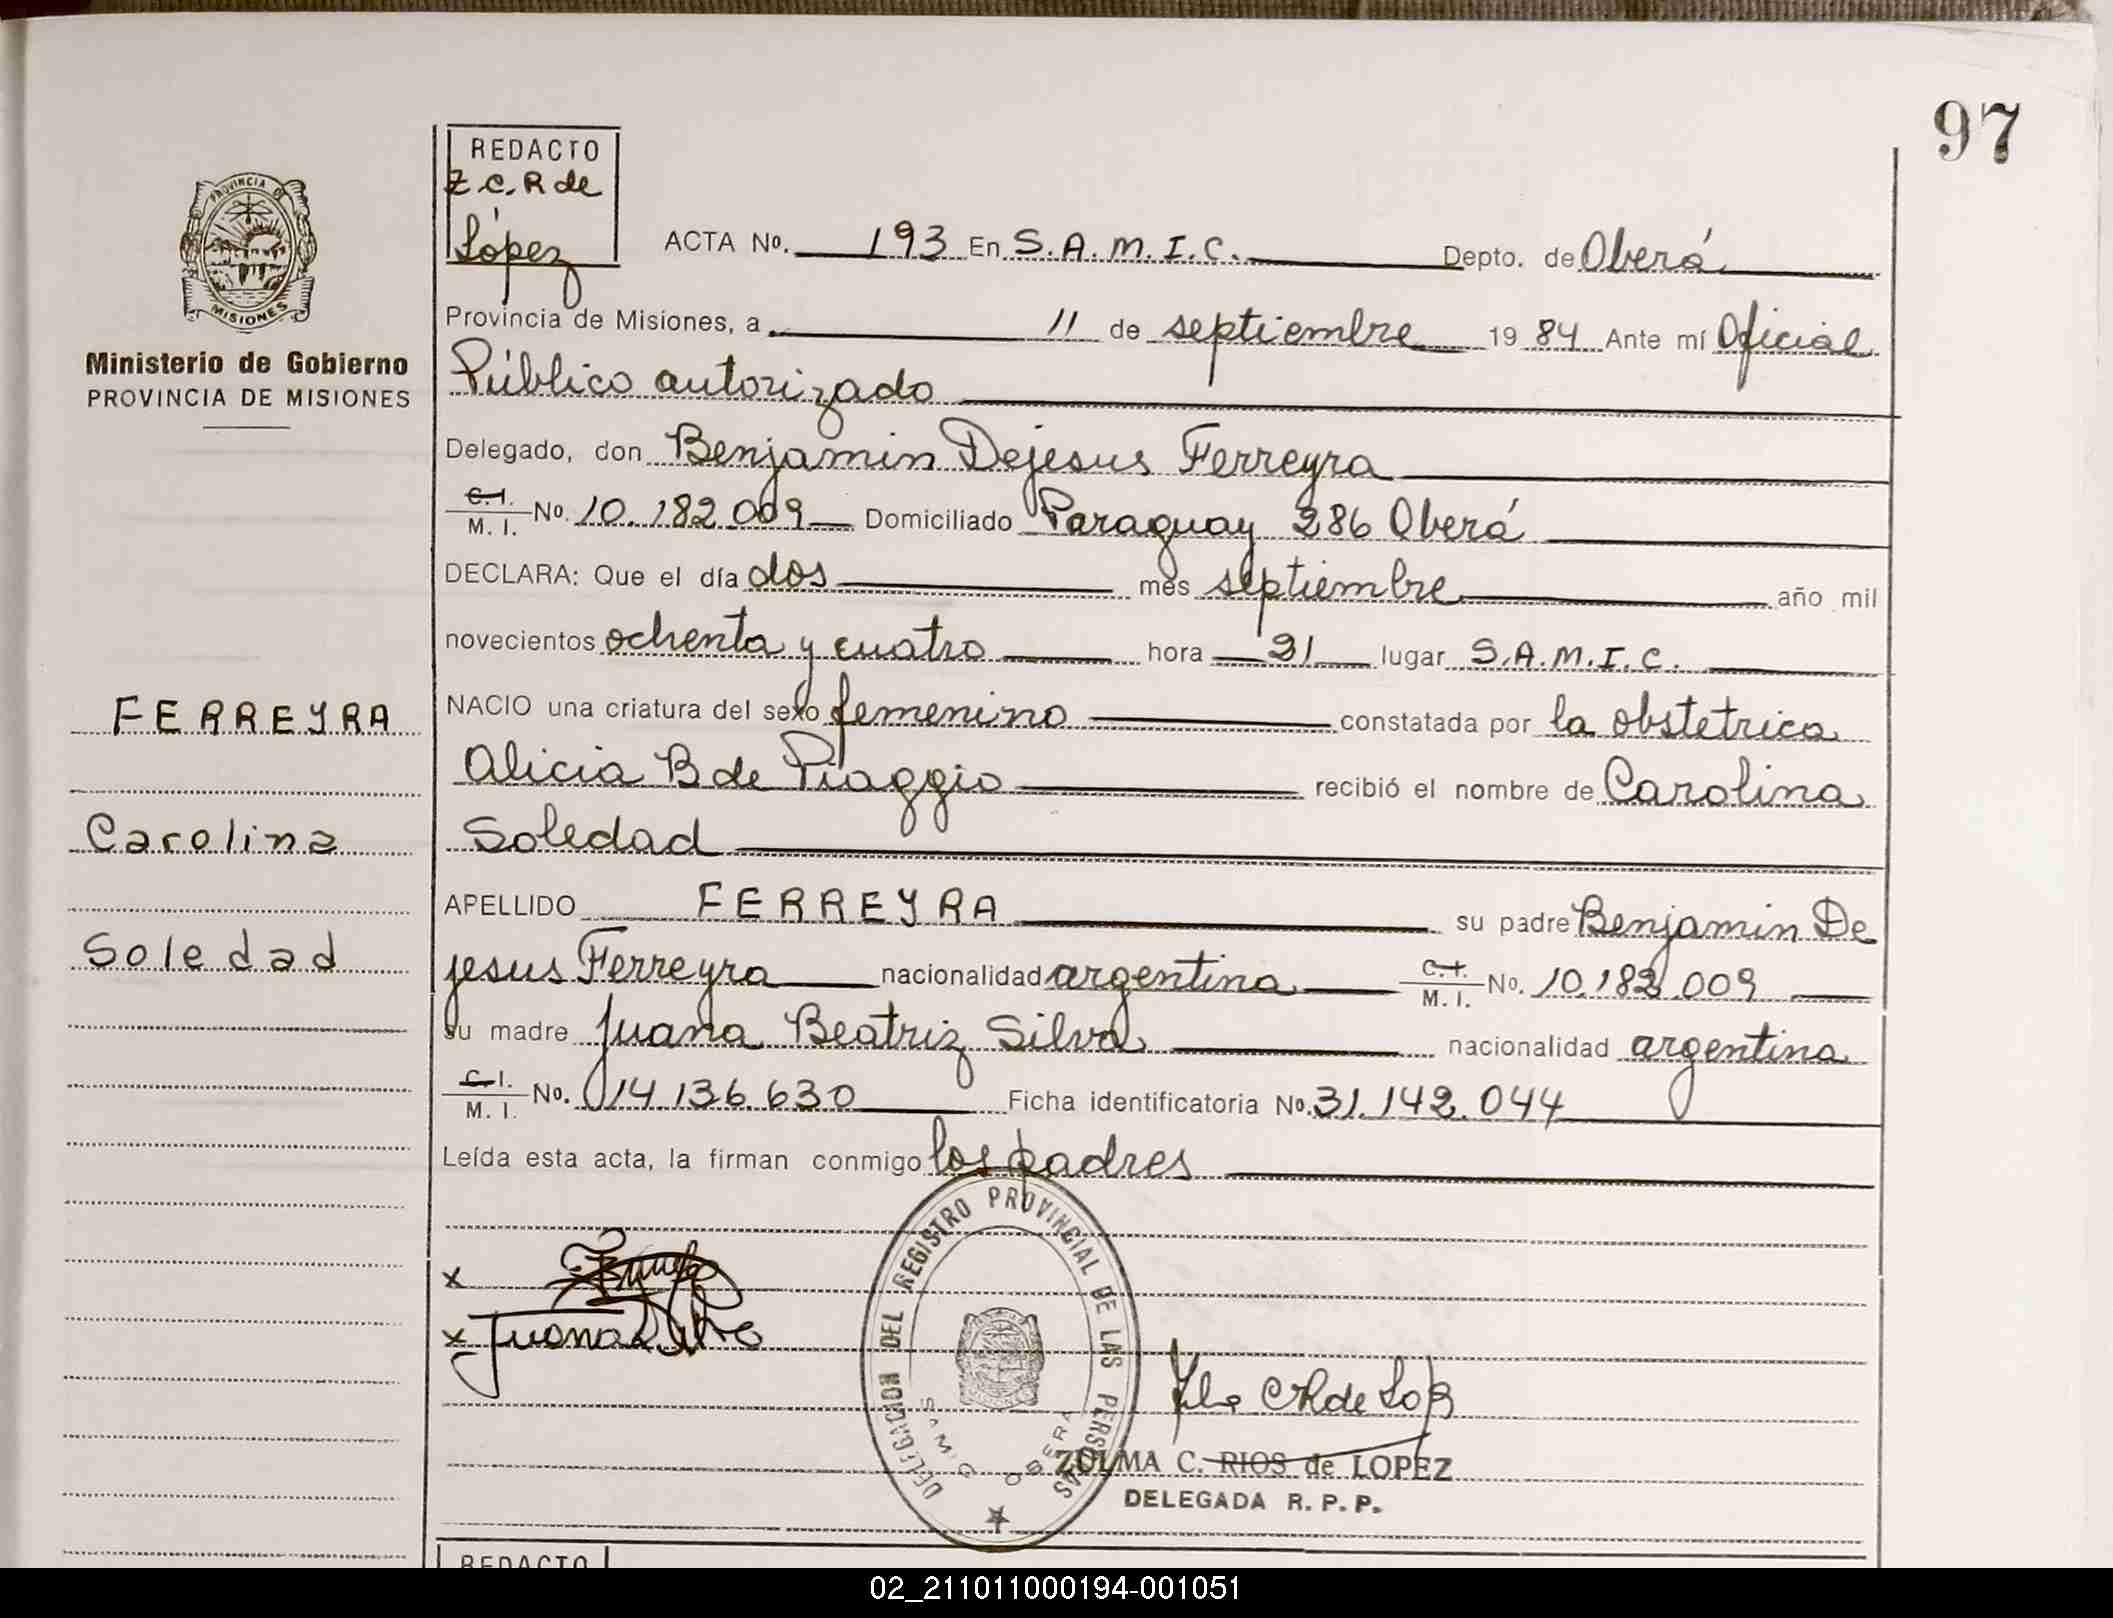 97
REDACTO
Z.C.R de
López
PROVINCIA DE
MISIONES
Ministerio de Gobierno
PROVINCIA DE MISIONES
ACTA No. 193 En S.A.M.I.C. Depto. de Oberá
Provincia de Misiones, a 11 de septiembre 1984 Ante mí Oficial
Público autorizado
Delegado, don Benjamin Dejesus Ferreyra
C.I. M.I. No. 10.182.009 Domiciliado Paraguay 286 Oberá
DECLARA: Que el día dos mes septiembre año mil
novecientos ochenta y cuatro hora 21 lugar S.A.M.I.C.
NACIO una criatura del sexo femenino constatada por la obstetrica
Alicia B de Piaggio recibió el nombre de Carolina
Soledad
FERREYRA
Carolina
Soledad
APELLIDO FERREYRA su padre Benjamin De
jesus Ferreyra nacionalidad argentina C.I. M.I. No. 10.182.009
su madre Juana Beatriz Silva nacionalidad argentina
C.I. M.I. No. 14.136.630 Ficha identificatoria No. 31.142.044
Leída esta acta, la firman conmigo los padres
x
x Juana
DELEGACION DEL REGISTRO PROVINCIAL DE LAS PERSONAS
OBERA
ZULMA C. RIOS de LOPEZ
DELEGADA R. P. P.
REDACTO
02_211011000194-001051